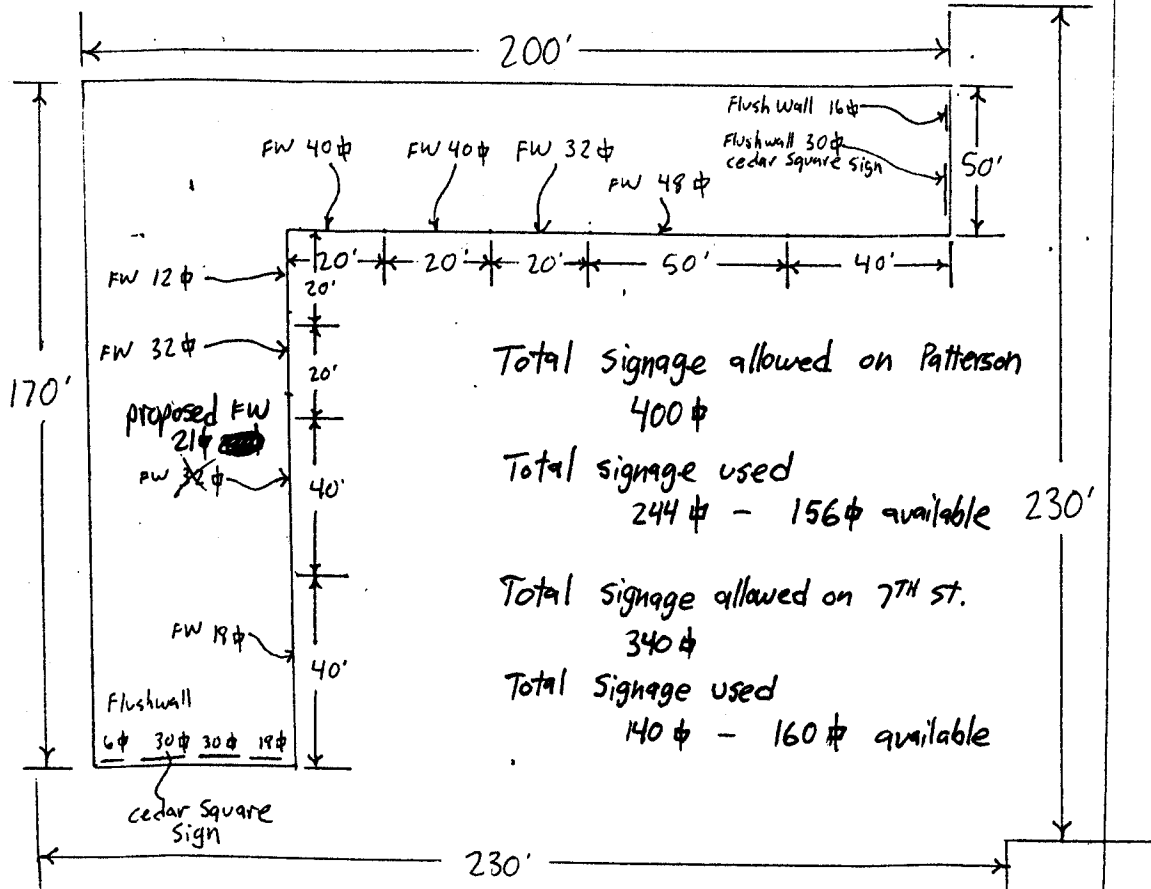 200'
Flush Wall 16⌽
FW 40⌽ FW 40⌽ FW 32⌽
Flushwall 30⌽
cedar Square Sign
50'
FW 48⌽
20' 20' 20' 50' 40'
FW 12⌽
20'
FW 32⌽
20'
170'
proposed FW
21⌽
FW 32⌽
40'
FW 18⌽
40'
Flushwall
6⌽ 30⌽ 30⌽ 18⌽
cedar Square
Sign
Total Signage allowed on Patterson
400⌽
Total signage used
244⌽ - 156⌽ available
230'
Total Signage allowed on 7TH st.
340⌽
Total Signage used
140⌽ - 160⌽ available
230'